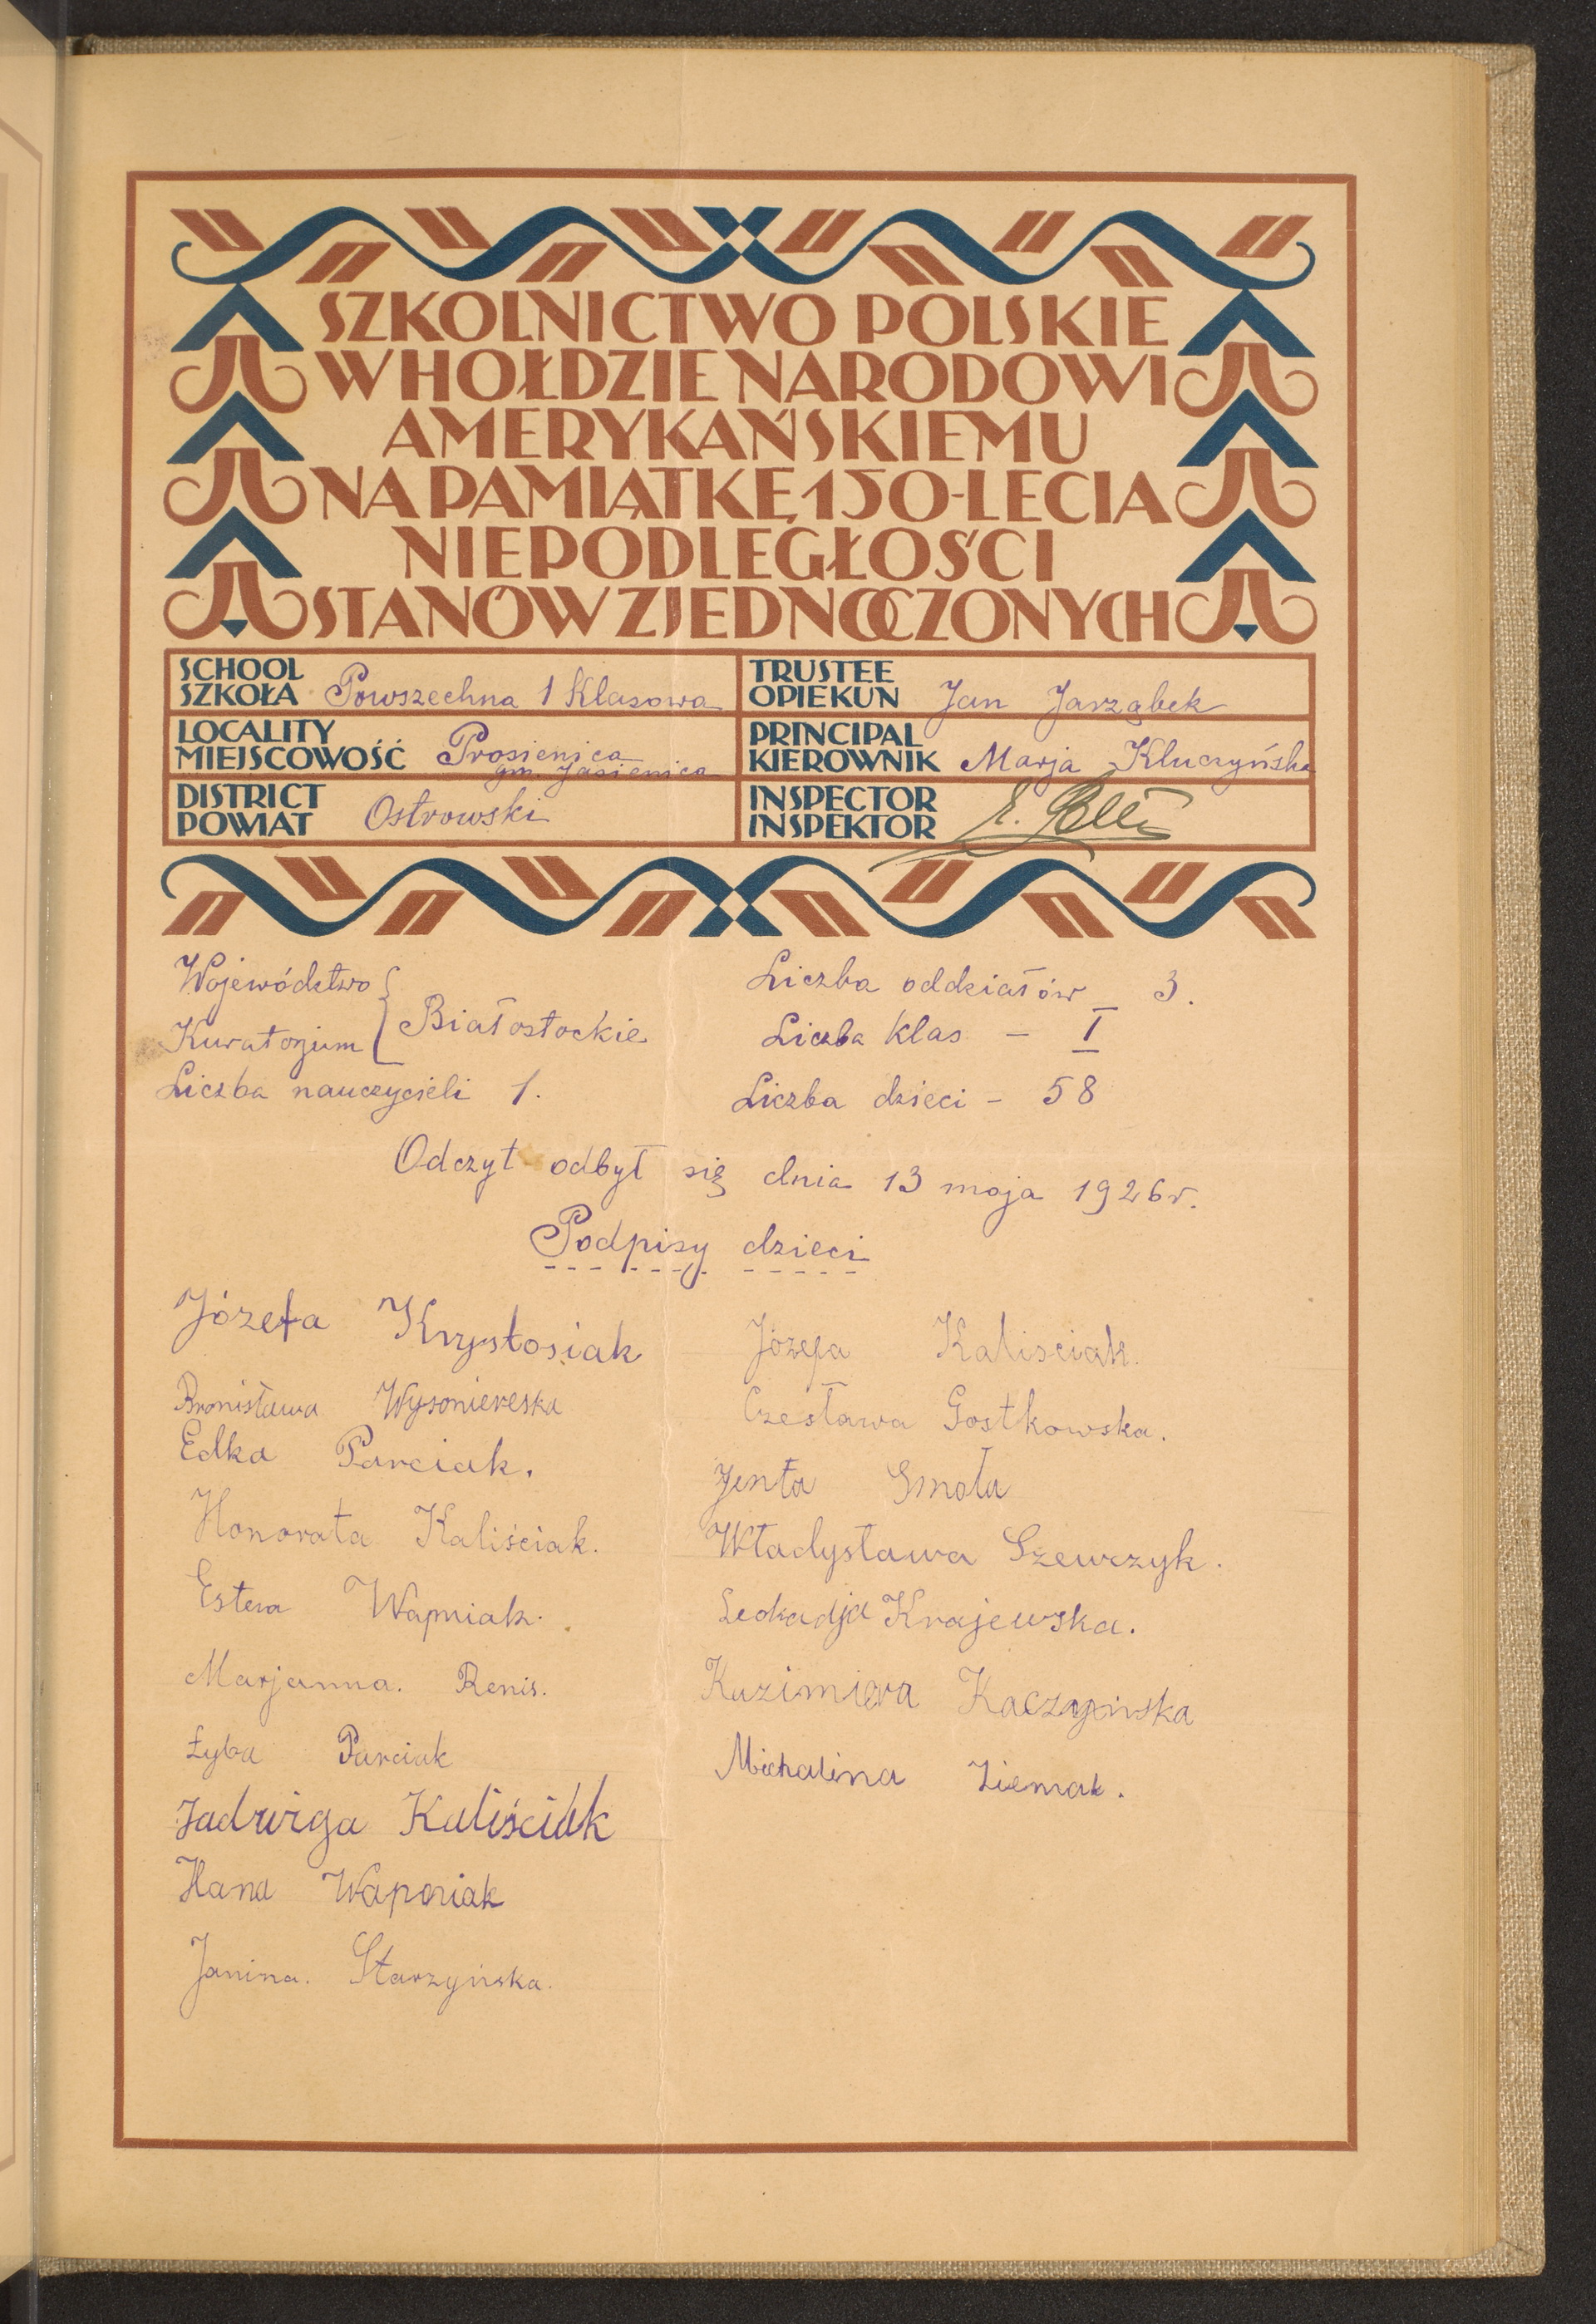 SZKOLNICTWO POLSKIE
W HOŁDZIE NARODOWI
AMERYKAŃSKIEMU
NA PAMIĄTKĘ 150-LECIA
NIEPODLEGŁOŚCI
STANÓW ZJEDNOCZONYCH
SCHOOL
SZKOŁA Powszechna 1 Klasowa
TRUSTEE
OPIEKUN Jan Jarząbek
LOCALITY
MIEJSCOWOŚĆ Prosienica
gm. Jasienica
PRINCIPAL
KIEROWNIK Marja Kluczyńska
DISTRICT
POWIAT Ostrowski
INSPECTOR
INSPEKTOR
Województwo
Kuratorjum Białostockie
Liczba nauczycieli 1.
Liczba oddziałów – 3.
Liczba klas – I
Liczba dzieci – 58
Odczyt odbył się dnia 13 maja 1926 r.
Podpisy dzieci
Józefa Krystosiak
Bronisława
Edka Parciak.
Honorata Kaliściak.
Estera Wapniak.
Marjanna. Renis.
Łyba Parciak
Jadwiga Kaliściak
Hana Wapniak
Janina. Starzyńska.
Józefa Kalisciak.
Czesława Gostkowska.
Jenta Smoła
Władysława Szewczyk.
Leokadja Krajewska.
Kazimiera Kaczyńska
Michalina Ziemak.